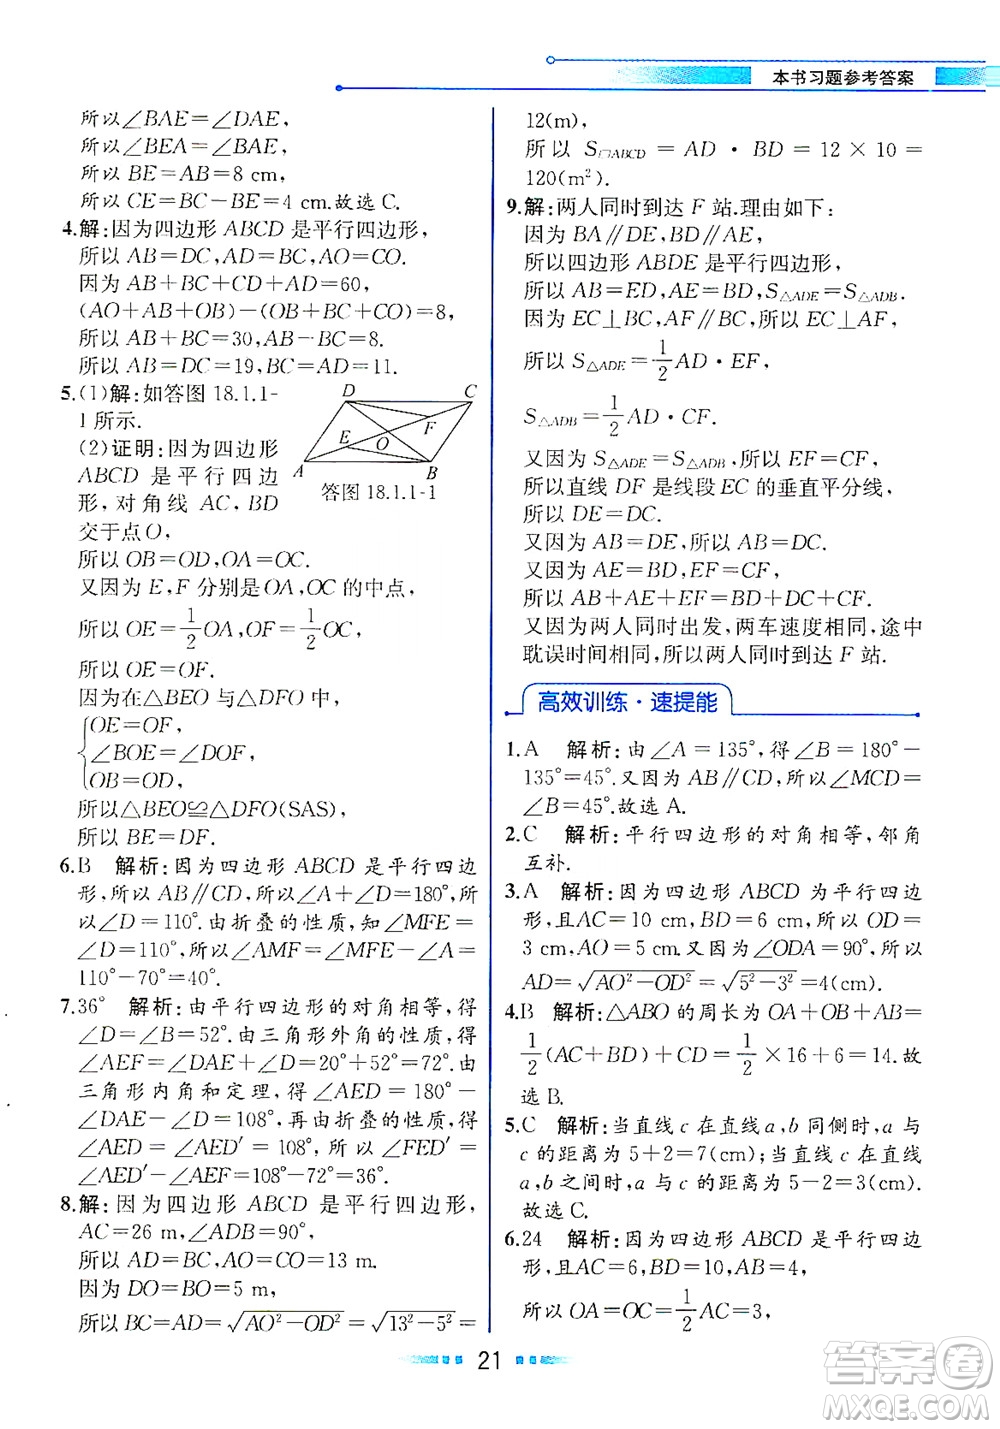 本书习题参考答案
所以∠BAE=∠DAE,
所以∠BEA=∠BAE,
所以 BE=AB=8 cm,
所以 CE=BC-BE=4 cm.故选 C.
4.解:因为四边形 ABCD 是平行四边形,
所以 AB=DC,AD=BC,AO=CO.
因为 AB+BC+CD+AD=60,
(AO+AB+OB)-(OB+BC+OC)=8,
所以 AB+BC=30,AB-BC=8,
所以 AB=DC=19,BC=AD=11.
5.(1)解:如答图 18.1.1-
1 所示.
(2)证明:因为四边形
ABCD 是平行四边
形,对角线 AC,BD
交于点 O,
D C
F
E O
A B
答图 18.1.1-1
所以 OB=OD,OA=OC.
又因为 E,F 分别是 OA,OC 的中点,
所以 OE=1/2OA,OF=1/2OC,
所以 OE=OF.
因为在△BEO 与△DFO 中,
OE=OF,
∠BOE=∠DOF,
OB=OD,
所以△BEO≌△DFO(SAS)
所以 BE=DF.
6.B 解析:因为四边形 ABCD 是平行四边
形,所以 AB∥CD,所以∠A+∠D=180°,所
以∠D=110°.由折叠的性质,知∠MFE=
∠D=110°,所以∠AMF=∠MFE-∠A=
110°-70°=40°.
7.36° 解析:由平行四边形的对角相等,得
∠D=∠B=52°.由三角形外角的性质,得
∠AEF=∠DAE+∠D=20°+52°=72°.由
三角形内角和定理,得∠AED=180°-
∠DAE-∠D=108°.再由折叠的性质,得
∠AED=∠AED′=108°,所以∠FED′=
∠AED′-∠AEF=108°-72°=36°.
8.解:因为四边形 ABCD 是平行四边形,
AC=26 m,∠ADB=90°,
所以 AD=BC,AO=OC=13 m.
因为 DO=BO=5 m,
所以 BC=AD=√(AO²-OD²)=√(13²-5²)=
12(m),
所以 S▱ABCD=AD·BD=12×10=
120(m²).
9.解:两人同时到达 F 站.理由如下:
因为 BA∥DE,BD∥AE,
所以四边形 ABDE 是平行四边形,
所以 AB=ED,AE=BD,S△ADE=S△ADB.
因为 EC⊥BC,AF∥BC,所以 EC⊥AF,
所以 S△ADE=1/2AD·EF,
S△ADB=1/2AD·CF.
又因为 S△ADE=S△ADB,所以 EF=CF,
所以直线 DF 是线段 EC 的垂直平分线,
所以 DE=DC.
又因为 AB=DE,所以 AB=DC.
又因为 AE=BD,EF=CF,
所以 AB+AE+EF=BD+DC+CF.
又因为两人同时出发,两车速度相同,途中
耽误时间相同,所以两人同时到达 F 站.
高效训练·速提能
1.A 解析:由∠A=135°,得∠B=180°-
135°=45°.又因为 AB∥CD,所以∠MCD=
∠B=45°.故选 A.
2.C 解析:平行四边形的对角相等,邻角
互补.
3.A 解析:因为四边形 ABCD 为平行四边
形,且AC=10 cm,BD=6 cm,所以 OD=
3 cm,AO=5 cm.又因为∠ODA=90°,所以
AD=√(AO²-OD²)=√(5²-3²)=4(cm).
4.B 解析:△ABO 的周长为 OA+OB+AB=
1/2(AC+BD)+CD=1/2×16+6=14.故
选 B.
5.C 解析:当直线 c 在直线 a,b 同侧时,a 与
c 的距离为 5+2=7(cm);当直线 c 在直线
a,b 之间时,a 与 c 的距离为 5-2=3(cm).
故选 C.
6.24 解析:因为四边形 ABCD 是平行四边
形,且AC=6,BD=10,AB=4,
所以 OA=OC=1/2AC=3,
21
答案圈
MXQE.COM